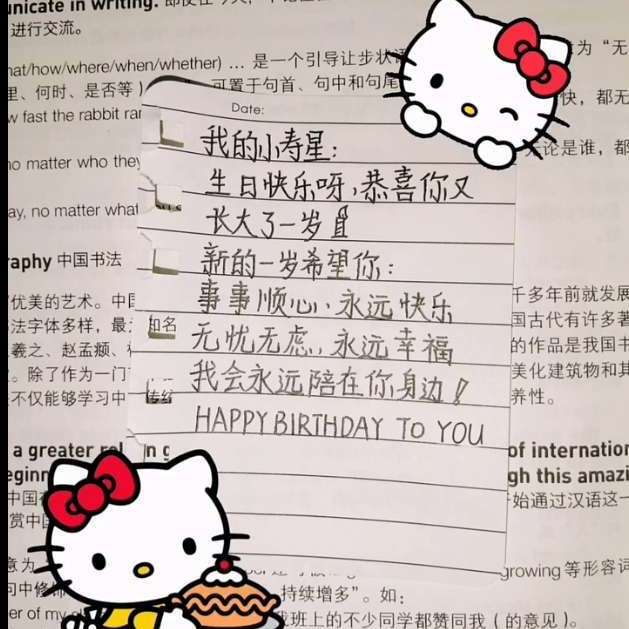 unicate in writing.
进行交流。
hat/how/where/when/whether) … 是一个引导让步状语
为“无
里、何时、是否等)
可置于句首、句中和句尾
快，都无
w fast the rabbit ran
no matter who they
无论是谁，都
ay, no matter what
Date:
我的小寿星：
生日快乐呀，恭喜你又
长大了一岁
新的一岁希望你：
事事顺心，永远快乐
无忧无虑，永远幸福
我会永远陪在你身边！
HAPPY BIRTHDAY TO YOU
raphy 中国书法
优美的艺术。中国
千多年前就发展
法字体多样，最
知名
国古代有许多著
羲之、赵孟頫、
的作品是我国书
。除了作为一门
美化建筑物和其
不仅能够学习中
传统
养性。
a greater
of internation
eginn
gh this amazi
中国
始通过汉语这一
赏中国
意为
growing 等形容词
句中修饰
持续增多”。如：
er of my
班上的不少同学都赞同我（的意见）。